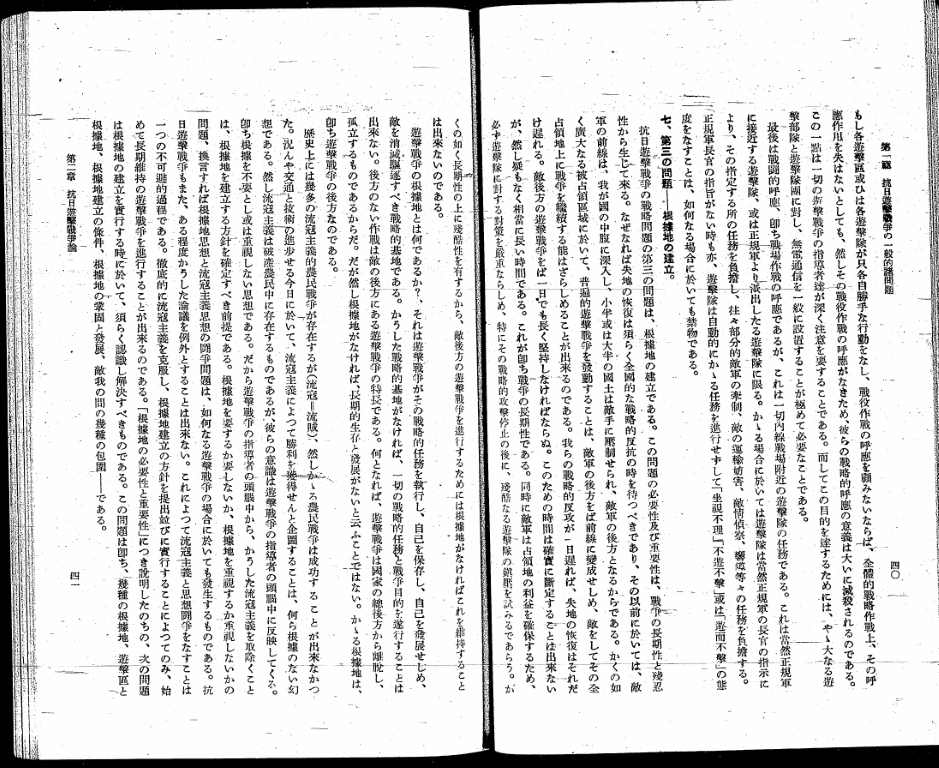 第一篇 抗日遊擊戰爭の一般的諸問題
四〇
もし各遊擊區或ひは各遊擊隊が只各自勝手な行動をなし、戰役作戰の呼應を顧みないならば、全體的戰略作戰上、その呼
應作用を失はないとしても、然しその戰役作戰の呼應がなきため彼らの戰略的呼應の意義は大いに減殺されるのである。
この一點は一切の遊擊戰爭の指導者達が深く注意を要することである。而してこの目的を達するためには、やゝ大なる遊
擊部隊と遊擊隊團に對し、無電通信を一般に設置することが極めて必要なことである。
最後は戰鬪的呼應、卽ち戰場作戰の呼應であるが、これは一切內線戰場附近の遊擊隊の任務である。これは當然正規軍
に接近する遊擊隊、或は正規軍より派出したる遊擊隊に限る。かゝる場合に於いては遊擊隊は當然正規軍の長官の指示に
より、その指定する所の任務を負擔し、往々部分的敵軍の牽制、敵の運輸妨害、敵情偵察、嚮導等々の任務を負擔する。
正規軍長官の指旨がない時も亦、遊擊隊は自動的にかゝる任務を進行せずして「坐視不理」「不遊不擊」或は「遊而不擊」の態
度をなすことは、如何なる場合に於いても禁物である。
七、第三の問題——根據地の建立。
抗日遊擊戰爭の戰略問題の第三の問題は、根據地の建立である。この問題の必要性及び重要性は、戰爭の長期性と殘忍
性から生じて來る。なぜなれば失地の恢復は須らく全國的な戰略的反抗の時を待つべきであり、その以前に於いては、敵
軍の前線は、我が國の中腹に深入し、小半或は大半の國土は敵手に壓制せられ、敵軍の後方となるからである。かくの如
く廣大なる被占領區域に於いて、普遍的遊擊戰爭を發動することは、敵軍の後方をば前線に變成せしめ、敵をしてその全
占領地上に戰爭を繼續する能はざらしめることが出來るのである。我らの戰略的反攻が一日遲れば、失地の恢復はそれだ
け遲れる。敵後方の遊擊戰爭をば一日でも長く堅持しなければならぬ。このための時間は確實に斷定することは出來ない
が、然し疑もなく相當に長い時間である。これが卽ち戰爭の長期性である。同時に敵軍は占領地の利益を確保するため、
必ず遊擊隊に對する對策を嚴重ならしめ、特にその戰略的攻擊停止の後に、殘酷なる遊擊隊の鎭壓を試みるであらう。か
くの如く長期性の上に殘酷性を有するから、敵後方の遊擊戰爭を進行するためには根據地がなければこれを維持すること
は出來ないのである。
遊擊戰爭の根據地とは何であるか?、それは遊擊戰爭がその戰略的任務を執行し、自己を保存し、自己を發展せしめ、
敵を消滅驅逐すべき戰略的基地である。かうした戰略的基地がなければ、一切の戰略的任務と戰爭目的を遂行することは
出來ない。後方のない作戰は敵の後方にある遊擊戰爭の特長である。何となれば、遊擊戰爭は國家の總後方から離脫し、
孤立するものであるからだ。だが然し根據地がなければ、長期的生存と發展がないと云ふことではない。かゝる根據地は、
卽ち遊擊戰爭の後方なのである。
歷史上には幾多の流寇主義的農民戰爭が存在するが(流寇=流賊)、然しかゝる農民戰爭は成功することが出來なかつ
た。況んや交通と技術の進步せる今日に於いて、流寇主義によつて勝利を獲得せんと企圖することは、何ら根據のない幻
想である。然し流寇主義は破產農民中に存在するものであるが、彼らの意識は遊擊戰爭の指導者の頭腦中に反映してくる。
卽ち根據地を不要とし或は重視しない思想である。だから遊擊戰爭の指導者の頭腦中から、かうした流寇主義を取除くこと
は、根據地を建立する方針を確定すべき前提である。根據地を要するか要しないか、根據地を重視するか重視しないかの
問題、換言すれば根據地思想と流寇主義思想の鬪爭問題は、如何なる遊擊戰爭の場合に於いても發生するものである。抗
日遊擊戰爭もまた、ある程度かうした論議を例外とすることは出來ない。これによつて流寇主義と思想鬪爭をなすことは
一つの不可避的過程である。徹底的に流寇主義を克服し、根據地建立の方針を提出並びに實行することによつてのみ、始
めて長期維持の遊擊戰爭を進行することが出來るのである。「根據地の必要性と重要性」につき說明したのちの、次の問題
は根據地の建立を實行する時に於いて、須らく認識し解決すべきものである。この問題は卽ち、幾種の根據地、遊擊區と
根據地、根據地建立の條件、根據地の鞏固と發展、敵我の間の幾種の包圍——である。
第二章 抗日遊擊戰爭論
四一